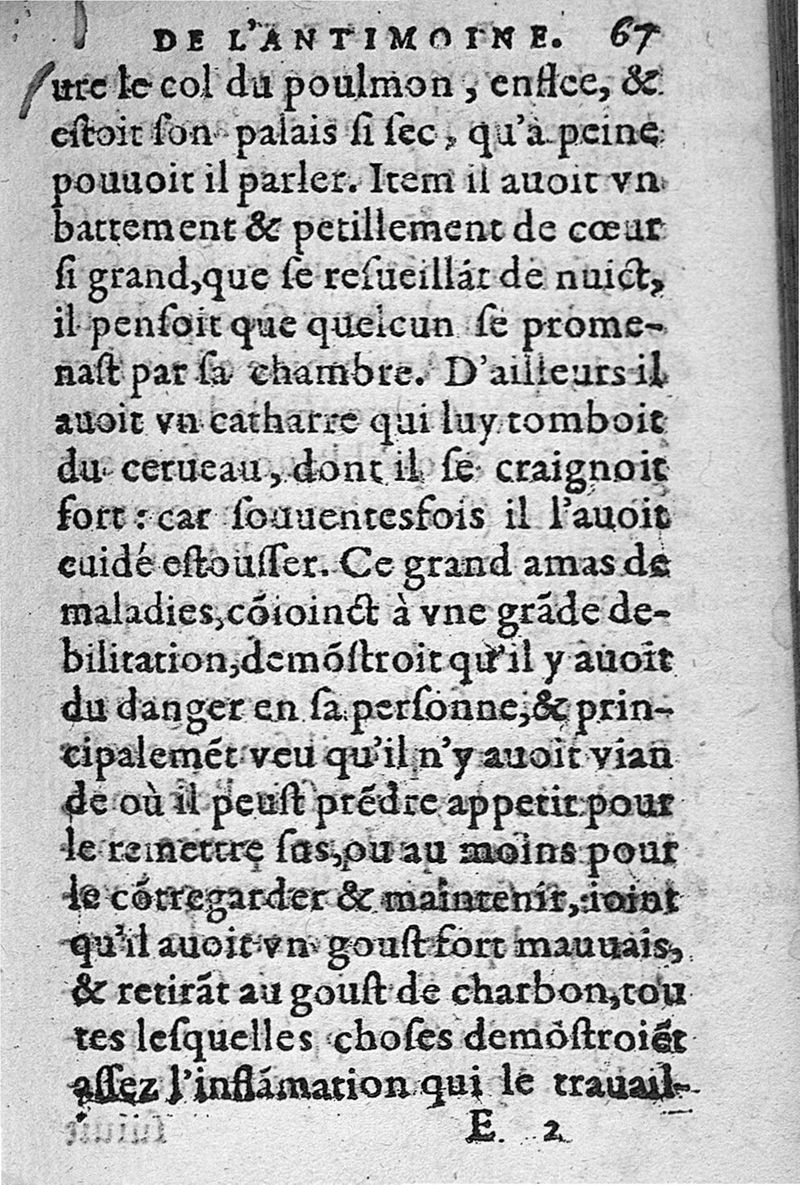 DE L'ANTIMOINE. 67
ure le col du poulmon, enflee, &
estoit son palais si sec, qu'à peine
pouuoit il parler. Item il auoit vn
battement & petillement de cœur
si grand, que se resueillāt de nuict,
il pensoit que quelcun se prome-
nast par sa chambre. D'ailleurs il
auoit vn catharre qui luy tomboit
du cerueau, dont il se craignoit
fort: car souuentesfois il l'auoit
cuidé estouffer. Ce grand amas de
maladies, cōioinct à vne grāde de-
bilitation, demōstroit qu'il y auoit
du danger en sa personne, & prin-
cipalemēt veu qu'il n'y auoit vian
de où il peust prēdre appetit pour
le remettre sus, ou au moins pour
le cōtregarder & maintenir, ioint
qu'il auoit vn goust fort mauuais,
& retirāt au goust de charbon, tou
tes lesquelles choses demōstroiēt
assez l'inflāmation qui le trauail-
E. 2